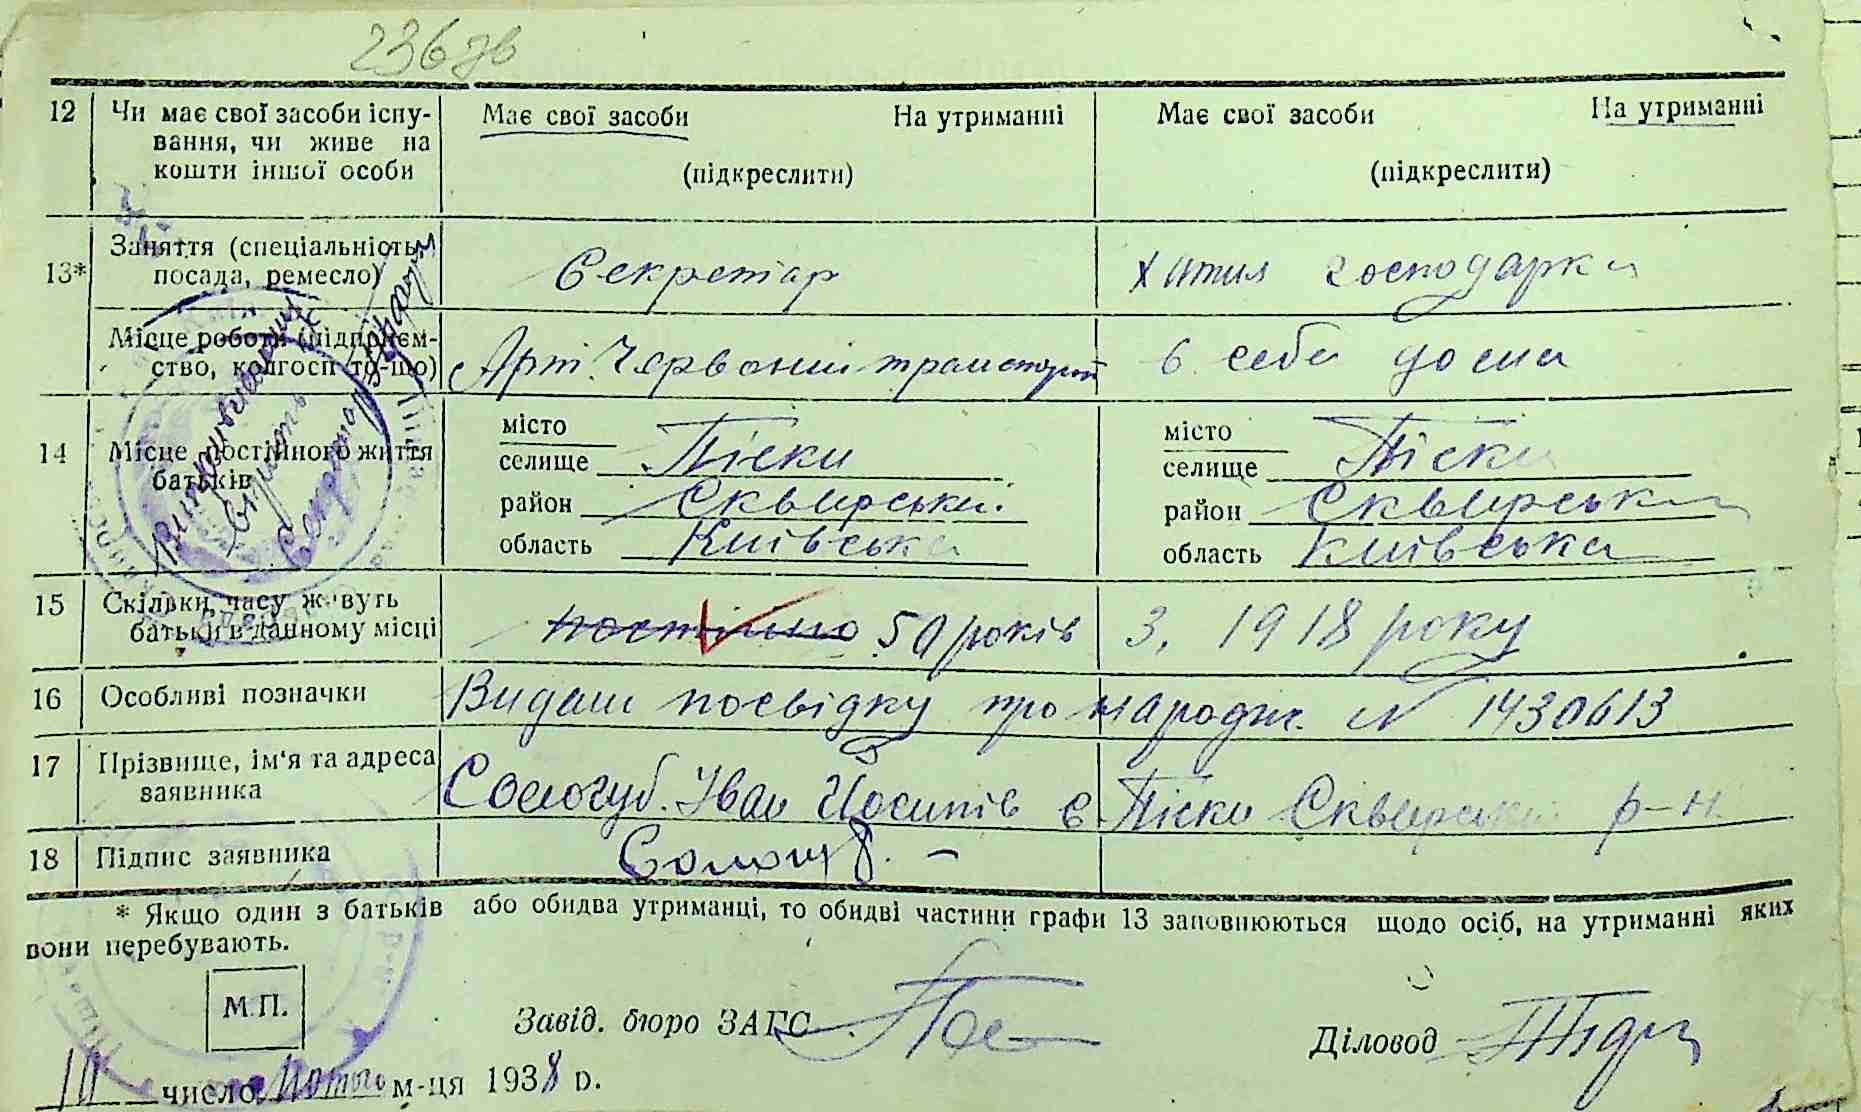 236 зв
12 Чи має свої засоби існу- Має свої засоби На утриманні Має свої засоби На утриманні
вання, чи живе на
кошти іншої особи (підкреслити) (підкреслити)
13* Заняття (спеціальність, Секретар Хатня господарка
посада, ремесло)
Місце роботи (підприєм- Арт. Червоний в себе дома
ство, колгосп то-що)
14 Місце постійного життя місто місто
батьків селище Піски селище Піски
район Сквирський район Сквирський
область Київська область Київська
Виправленому
вірить
Секретар
15 Скільки часу живуть постійно 50 років З 1918 року
батьки в данному місці
16 Особливі позначки Видаш посвідку про народж. № 1430613
17 Прізвище, ім'я та адреса Сологуб Іван Йосипів с Піски Сквирськ р-н
заявника
18 Підпис заявника Сологуб. —
* Якщо один з батьків або обидва утриманці, то обидві частини графи 13 заповнюються щодо осіб, на утриманні яких
вони перебувають.
М.П.
Завід. бюро ЗАГС Діловод
10 число лютого м-ця 1938 р.